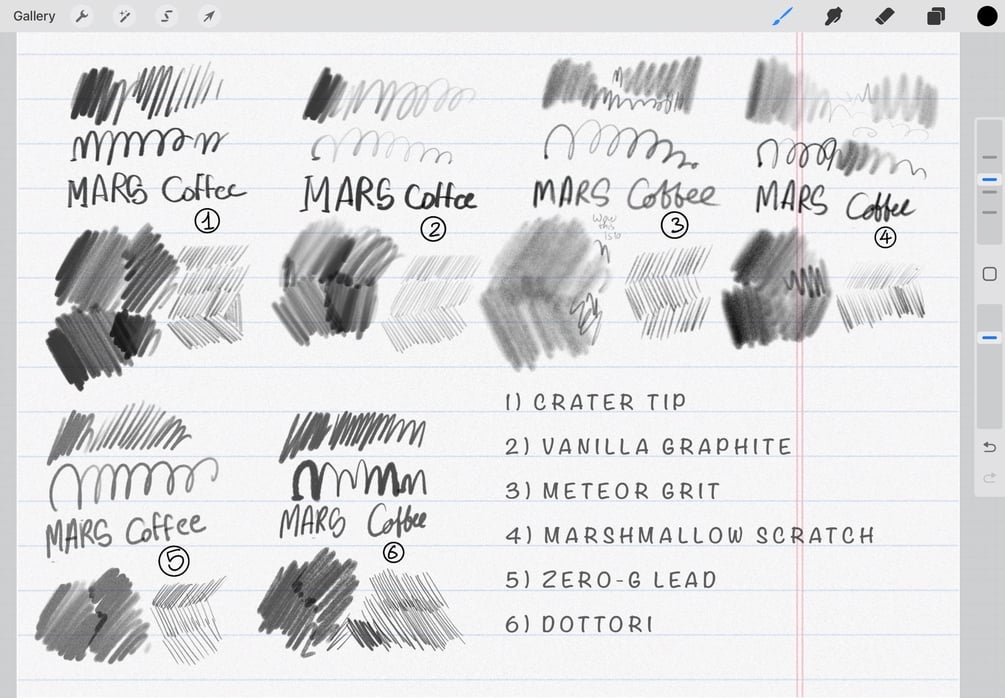 Gallery
MARS Coffee
MARS Coffee
MARS Coffee
MARS Coffee
1
2
3
4
MARS Coffee
MARS Coffee
5
6
1) CRATER TIP
2) VANILLA GRAPHITE
3) METEOR GRIT
4) MARSHMALLOW SCRATCH
5) ZERO-G LEAD
6) DOTTORI